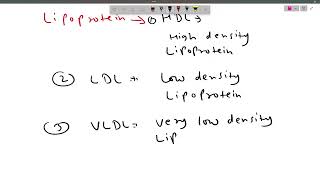 Lipoprotein → ① HDL →
High density
Lipoprotein
② LDL → Low density
Lipoprotein
③ VLDL → Very low density
Lip